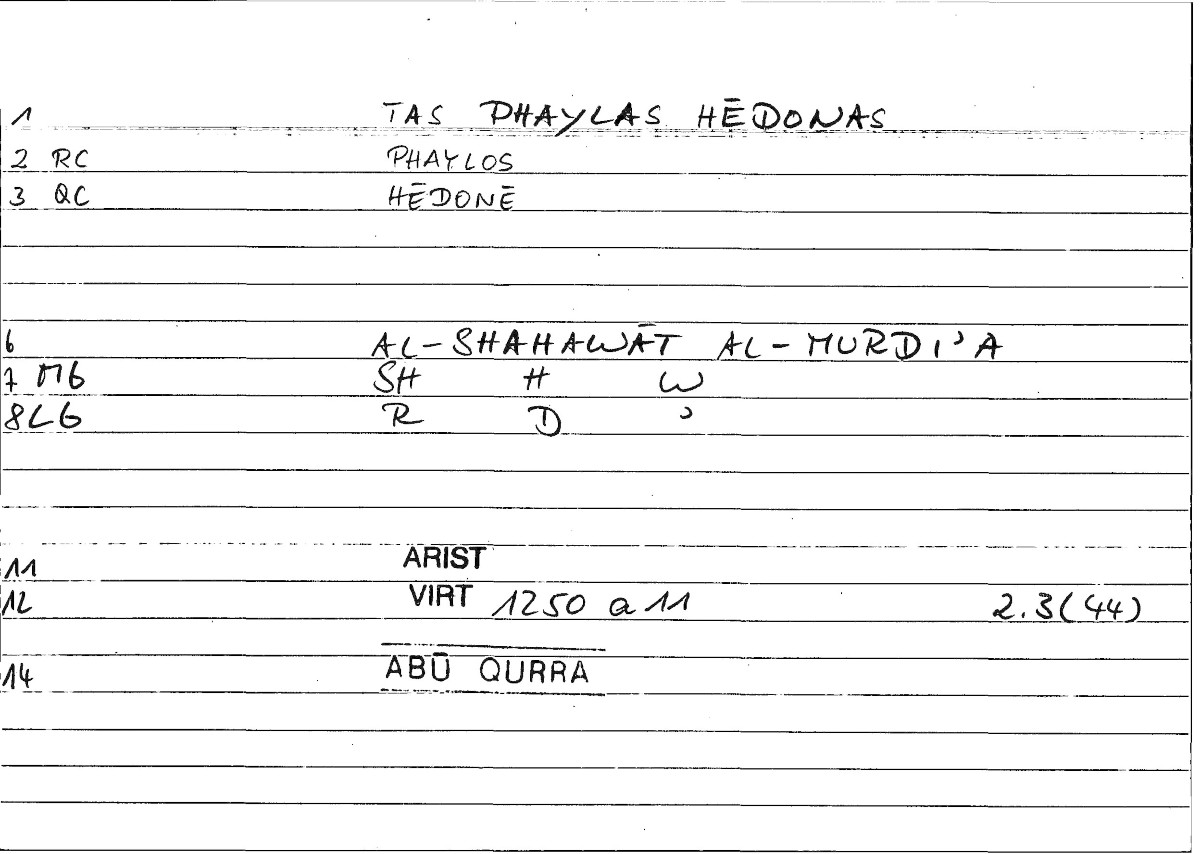 1 TAS PHAYLAS HĒDONAS
2 RC PHAYLOS
3 QC HĒDONĒ
6 AL-SHAHAWĀT AL-MURDI'A
7 M6 SH H W
8 L6 R D '
11 ARIST
12 VIRT 1250 a 11 2.3(44)
14 ABŪ QURRA